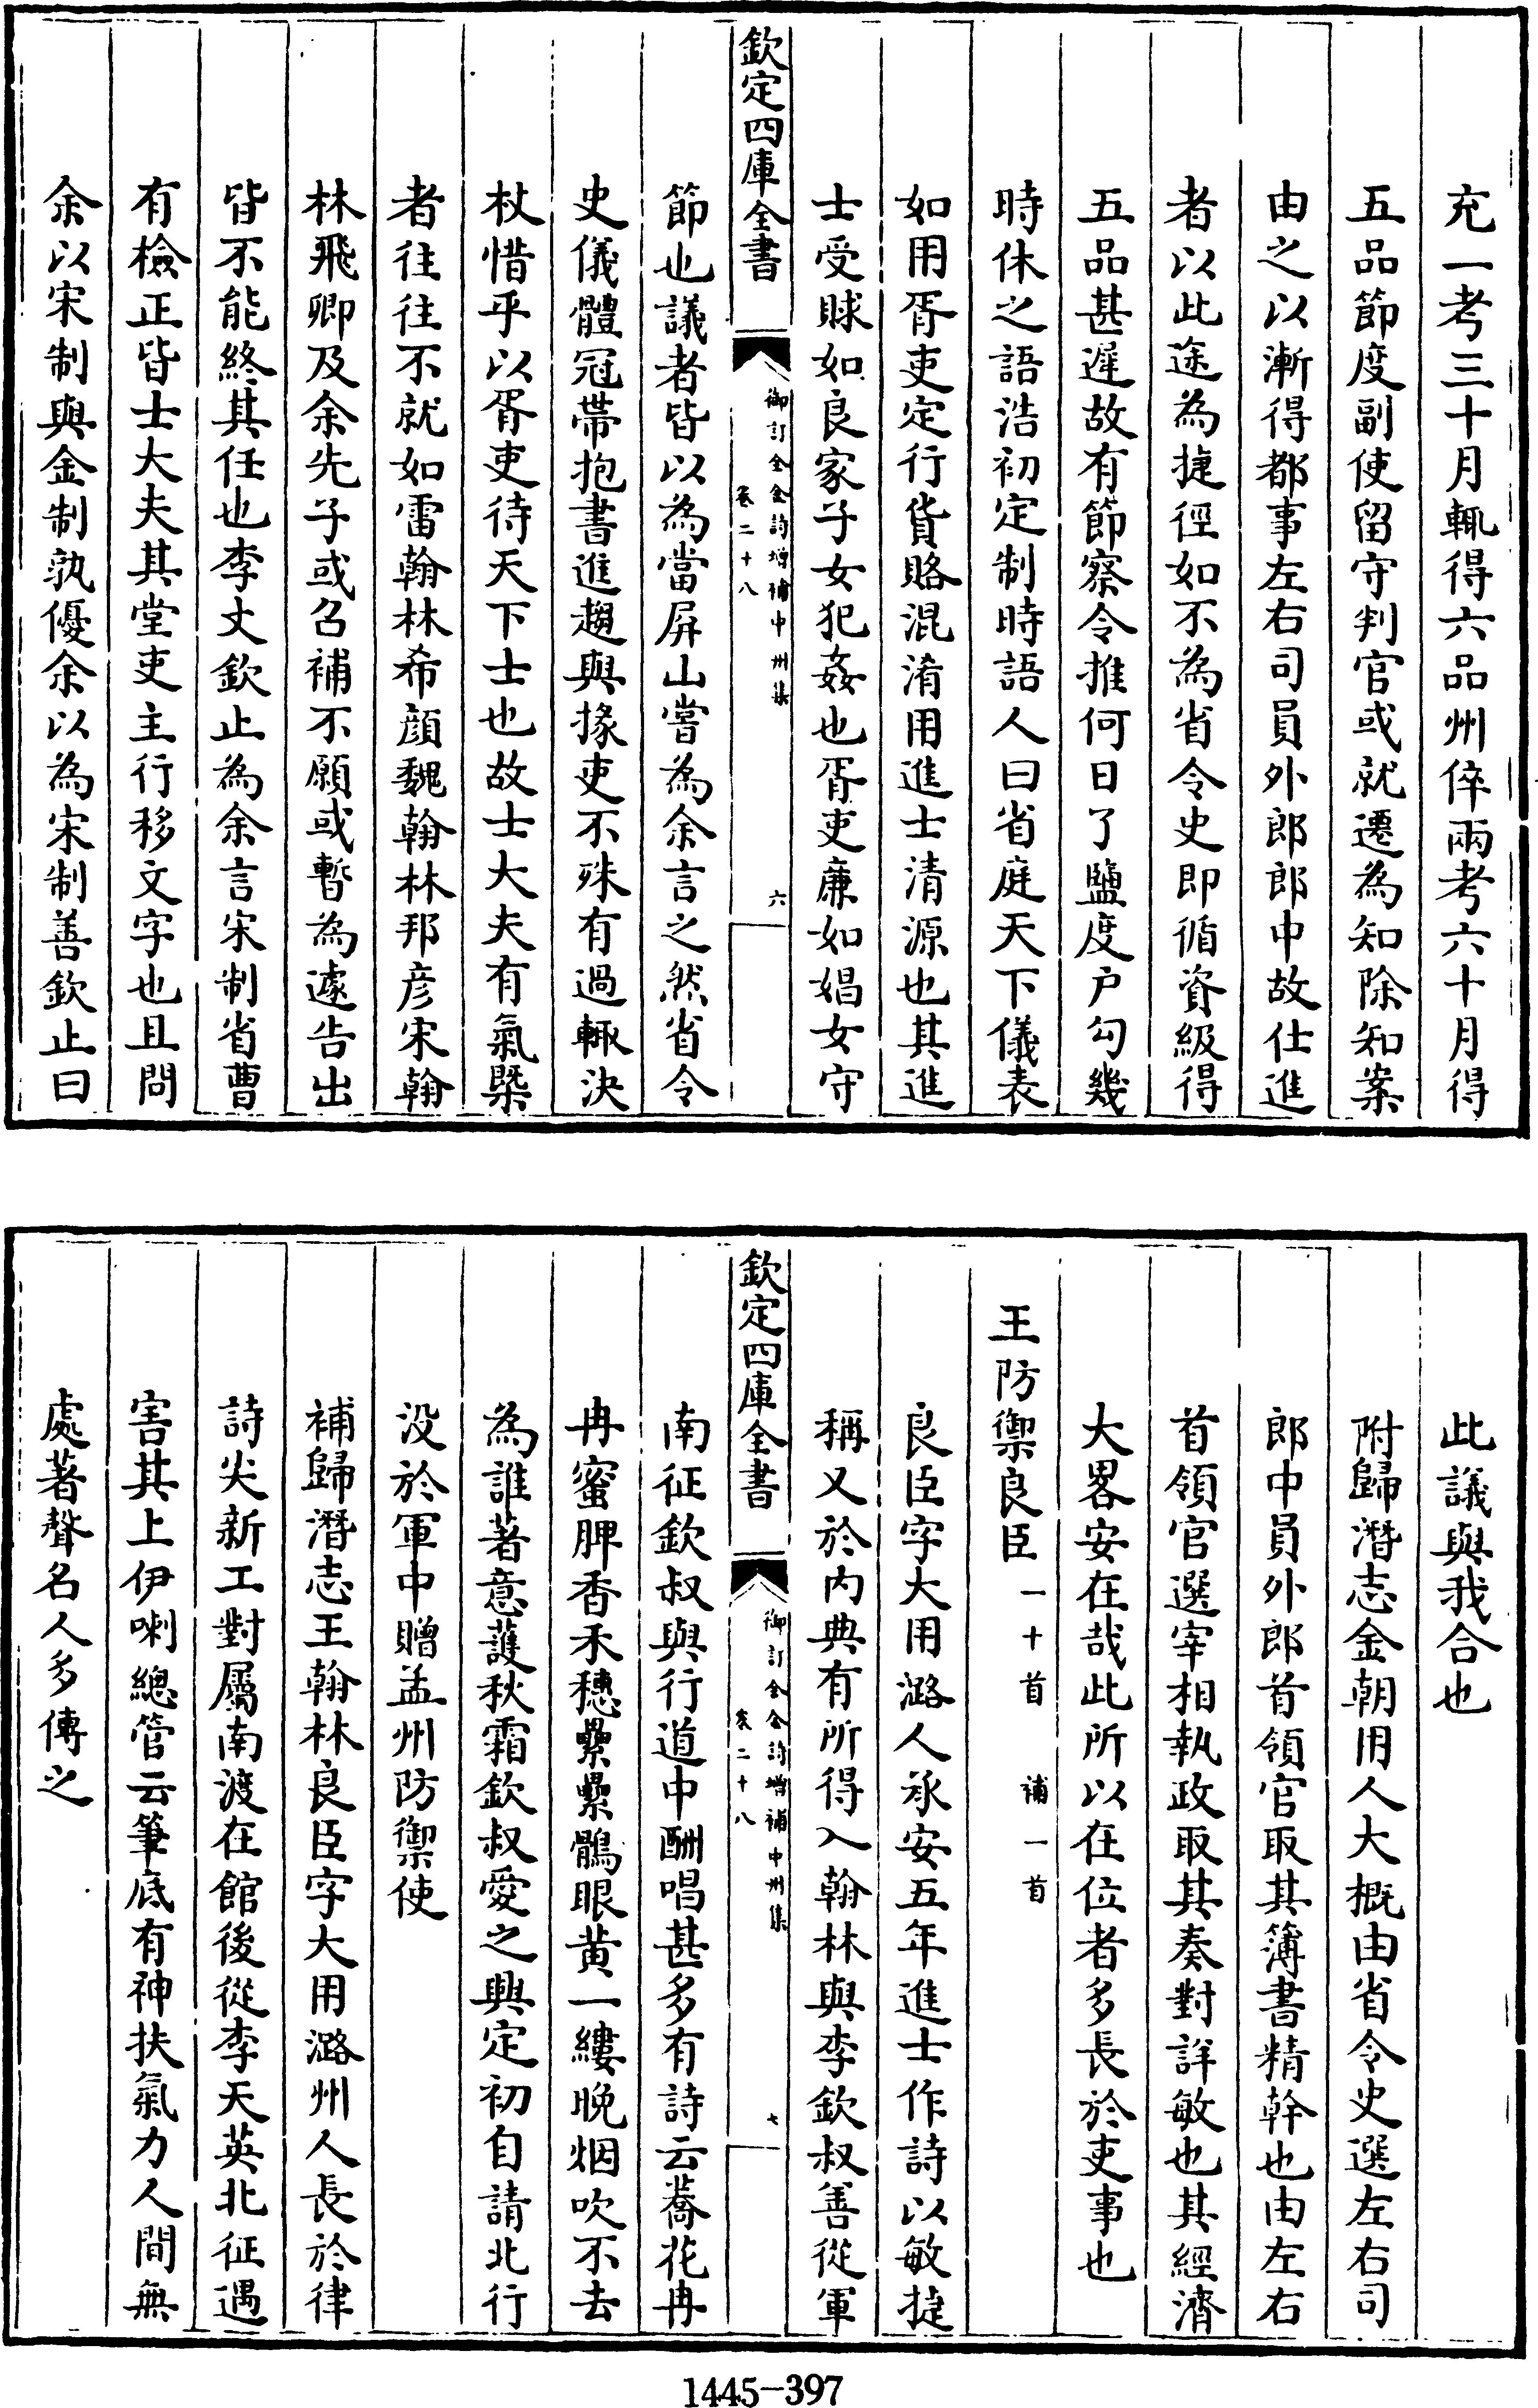 充一考三十月輒得六品州倅兩考六十月得
五品節度副使留守判官或就遷為知除知案
由之以漸得都事左右司員外郎郎中故仕進
者以此途為捷徑如不為省令史即循資級得
五品甚遲故有節察令推何日了鹽度户勾幾
時休之語浩初定制時語人曰省庭天下儀表
如用胥吏定行貨賂混淆用進士清源也其進
士受賕如良家子女犯姦也胥吏廉如娼女守
欽定四庫全書
御訂全金詩增補中州集
卷二十八
六
節也議者皆以為當屏山嘗為余言之然省令
史儀體冠帶抱書進趨與掾吏不殊有過輙決
杖惜乎以胥吏待天下士也故士大夫有氣槩
者往往不就如雷翰林希顔魏翰林邦彦宋翰
林飛卿及余先子或召補不願或暫為遽告出
皆不能終其任也李丈欽止為余言宋制省曹
有檢正皆士大夫其堂吏主行移文字也且問
余以宋制與金制孰優余以為宋制善欽止曰
此議與我合也
附歸潛志金朝用人大概由省令史選左右司
郎中員外郎首領官取其簿書精幹也由左右
首領官選宰相執政取其奏對詳敏也其經濟
大畧安在哉此所以在位者多長於吏事也
王防禦良臣 一十首 補一首
良臣字大用潞人承安五年進士作詩以敏捷
稱又於内典有所得入翰林與李欽叔善從軍
欽定四庫全書
御訂全金詩增補中州集
卷二十八
七
南征欽叔與行道中酬唱甚多有詩云蕎花冉
冉蜜脾香禾穗纍纍鶻眼黄一縷晚烟吹不去
為誰著意護秋霜欽叔愛之興定初自請北行
没於軍中贈孟州防禦使
補歸潛志王翰林良臣字大用潞州人長於律
詩尖新工對屬南渡在館後從李天英北征遇
害其上伊喇總管云筆底有神扶氣力人間無
處著聲名人多傳之
1445-397